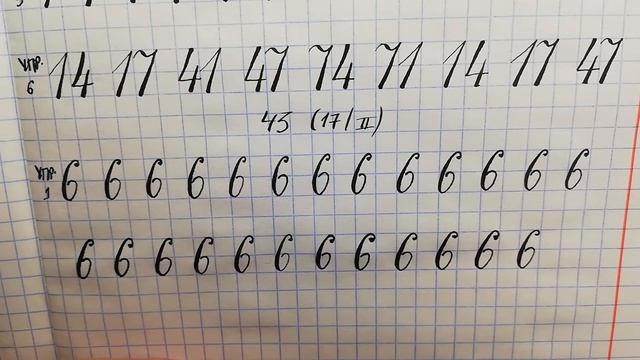 упр. 6 14 17 41 47 74 71 14 17 47
(17/II)
упр. 1 6 6 6 6 6 6 6 6 6 6 6 6 6
6 6 6 6 6 6 6 6 6 6 6 6